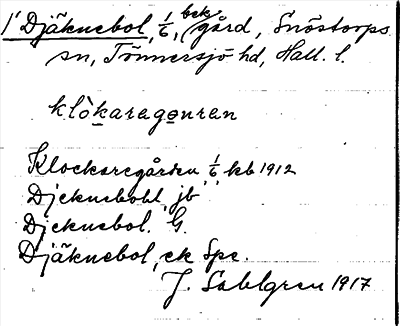 1' Djäknebol, 1/6, bck gård, Snöstorps
sn, Tönnersjö hd, Hall. l.
klòkaragɷnren
Klockaregården 1/6 kb 1912
Djeknebohl, jb
Djeknebol. G.
Djäknebol, ek Spe.
J. Sahlgren 1917